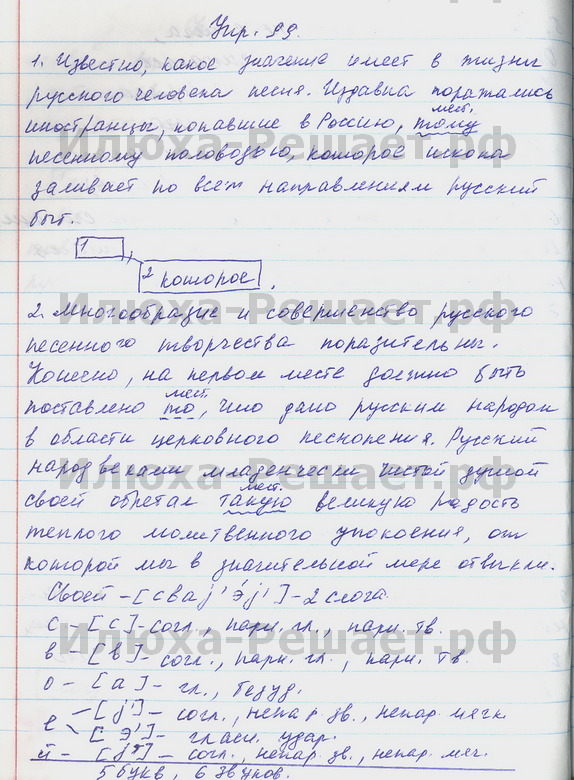 Упр. 99.
1. Известно, какое значение имеет в жизни
русского человека песня. Издавна поражались
мест.
иностранцы, попавшие в Россию, тому
песенному половодью, которое искони
заливает по всем направлениям русский
быт.
1
2 которое .
2. Многообразие и совершенство русского
песенного творчества поразительны.
Конечно, на первом месте должно быть
мест.
поставлено то, что дано русским народом
в области церковного песнопения. Русский
народ веками младенчески чистой душой
мест.
своей обретал такую великую радость
теплого молитвенного упокоения, от
которой мы в значительной мере отвыкли.
Своей – [сваj'э́j'] – 2 слога.
с – [с] – согл., парн. гл., парн. тв.
в – [в] – согл., парн. гл., парн. тв.
о – [а] – гл., безуд.
е – [j'] – согл., непар. зв., непар. мягк.
[э'] – гласн. удар.
й – [j'] – согл., непар. зв., непар. мяг.
5 букв, 6 звуков.
Илюха-Решает.рф
Илюха-Решает.рф
Илюха-Решает.рф
Илюха-Решает.рф